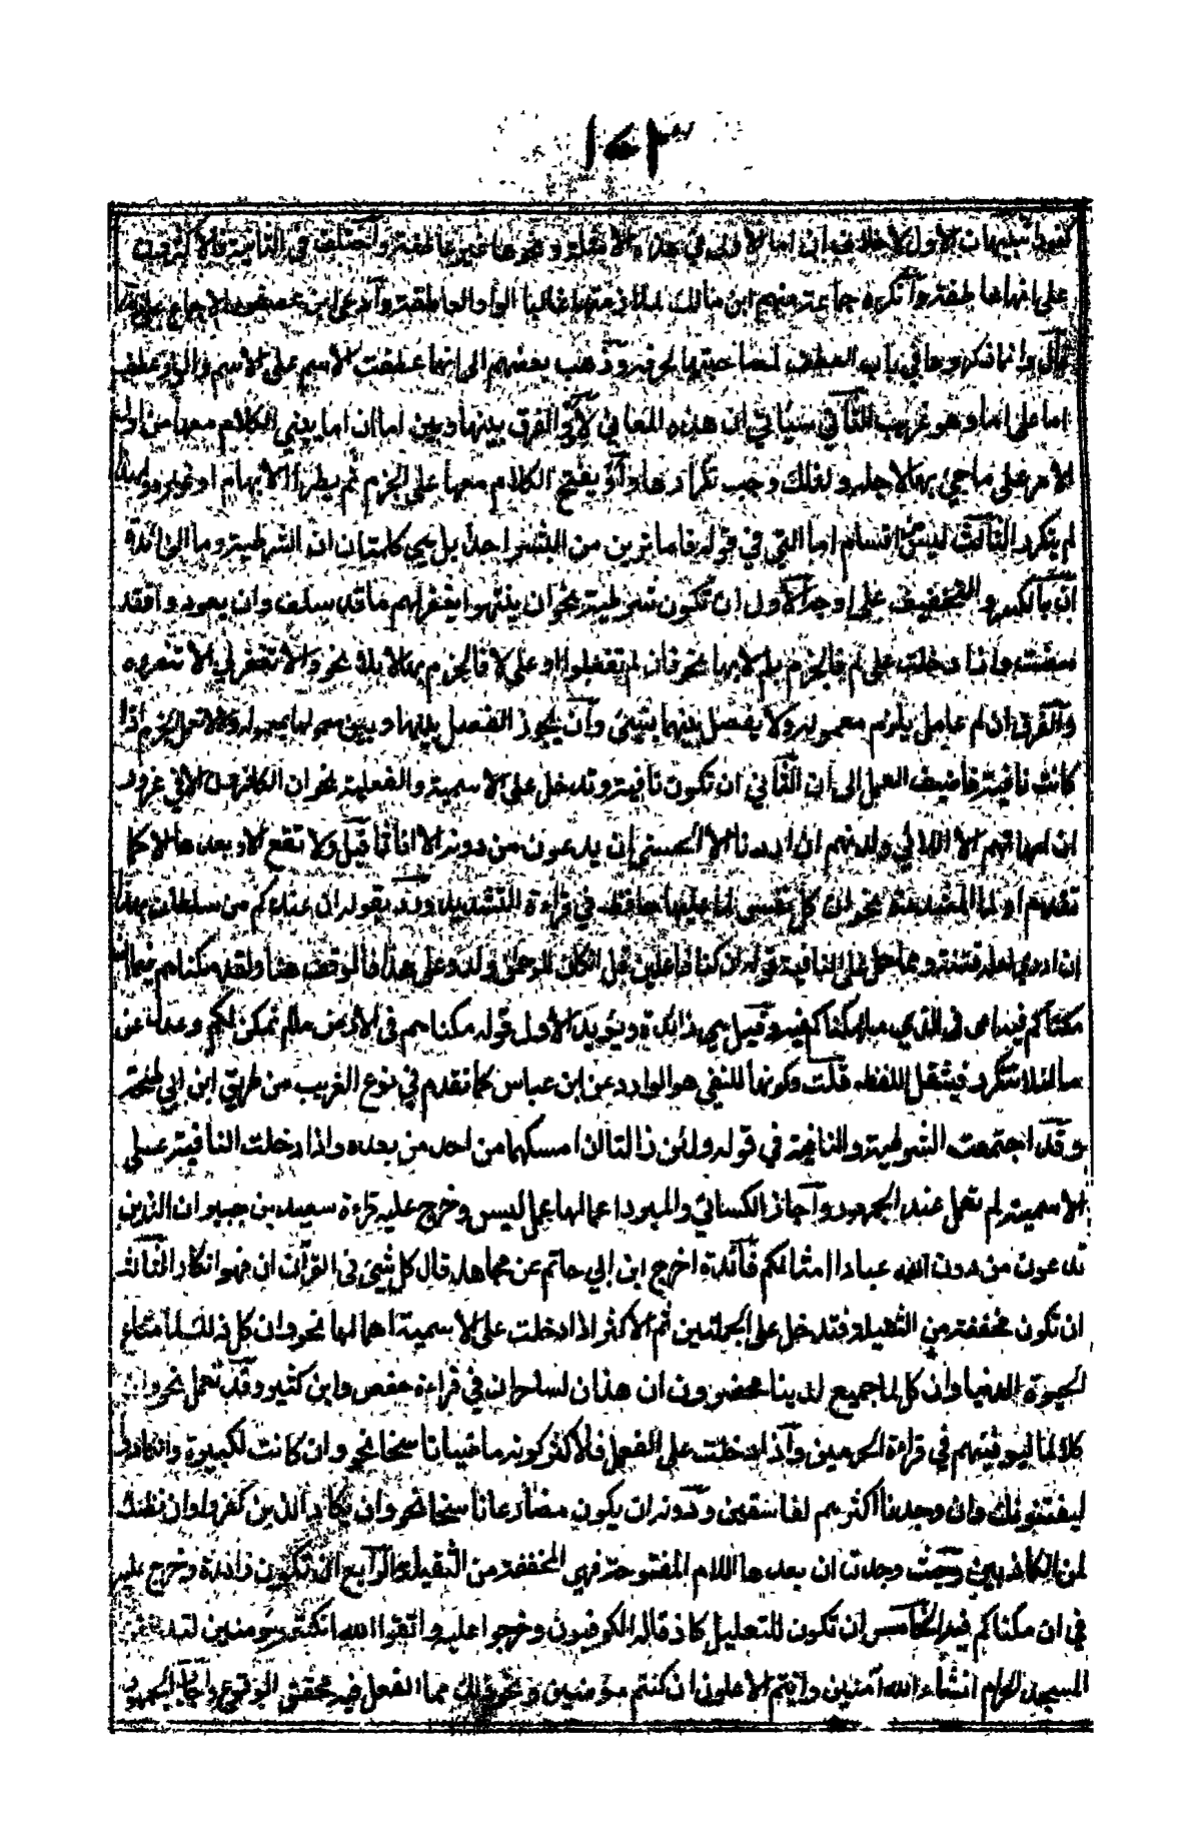 ١٥٣
كفورا تنبيهات الاول لا خلاف ان اما الاولى في هذه الامثلة ونحوها غير عاطفة واختلف في الثانية فالاكثرون
على انها عاطفة وانكره جماعة منهم ابن مالك لملازمتها غالبا الواو العاطفة وادعى ابن عصفور الاجماع على
قال وانما ذكروها في باب العطف لمصاحبتها لحرفه وذهب بعضهم الى انها عطفت الاسم على الاسم والواو عطفت
اما على اما وهو غريب الثاني سياتي ان هذه المعاني لاو والفرق بينها وبين اما ان اما يبنى الكلام معها من اول
الامر على ما جيء بها لاجله ولذلك وجب تكرارها واو يفتح الكلام معها على الجزم ثم يطرا الابهام او غيره ولهذا
لم يتكرر الثالث ليس من اقسام اما التي في قوله فاما ترين من البشر احدا بل هي كلمتان ان الشرطية وما الزائدة
ان بالكسر والتخفيف على اوجه الاول ان تكون شرطية نحو ان ينتهوا يغفر لهم ما قد سلف وان يعودوا فقد
مضت واذا دخلت على لم فالجزم بلم لا بها نحو فان لم تفعلوا او على لا فالجزم بها لا بلا نحو والا تغفر لي الا تنصروه
والفرق ان لم عامل يلزم معموله ولا يفصل بينهما بشيئ وان يجوز الفصل بينها وبين معمولها بمعموله ولا لا تعمل الجزم اذا
كانت نافية فاضيف العمل الى ان الثاني ان تكون نافية وتدخل على الاسمية والفعلية نحو ان الكافرون الا في غرور
ان امهاتهم الا اللائي ولدنهم ان اردنا الا الحسنى ان يدعون من دونه الا اناثا قيل ولا تقع الا وبعدها الا كما
تقدم او لما المشددة نحو ان كل نفس لما عليها حافظ في قراءة التشديد ورد بقوله ان عندكم من سلطان بهذا
ان ادري لعله فتنة ومما حمل على النافية قوله ان كنا فاعلين قل ان كان للرحمن ولد وعلى هذا فالوقف هنا ولقد مكناهم فيما ان
مكناكم فيه اى فى الذي ما مكناكم فيه وقيل هي زائدة ويؤيد الاول قوله مكناهم فى الارض ما لم نمكن لكم وعدل عن
ما لئلا تتكرر فيثقل اللفظ قلت وكونها للنفي هو الوارد عن ابن عباس كما تقدم في نوع الغريب من طريق ابن ابي طلحة
وقد اجتمعت الشرطية والنافية في قوله ولئن زالتا ان امسكهما من احد من بعده واذا دخلت النافية على
الاسمية لم تعمل عند الجمهور واجاز الكسائي والمبرد اعمالها عمل ليس وخرج عليه قراءة سعيد بن جبير ان الذين
تدعون من دون الله عبادا امثالكم فائدة اخرج ابن ابي حاتم عن مجاهد قال كل شيئ فى القرآن ان فهو انكار الثالث
ان تكون مخففة من الثقيلة فتدخل على الجملتين ثم الاكثر اذا دخلت على الاسمية اهمالها نحو وان كل ذلك لما متاع
الحيوة الدنيا وان كل لما جميع لدينا محضرون ان هذان لساحران في قراءة حفص وابن كثير وقد تعمل نحو وان
كلا لما ليوفينهم في قراءة الحرمين واذا دخلت على الفعل فالاكثر كونه ماضيا ناسخا نحو وان كانت لكبيرة وان كادوا
ليفتنونك وان وجدنا اكثرهم لفاسقين ودونه ان يكون مضارعا ناسخا نحو وان يكاد الذين كفروا وان نظنك
لمن الكاذبين وحيث وجدت ان بعدها اللام المفتوحة فهي المخففة من الثقيلة الرابع ان تكون زائدة وخرج عليه
في ان مكناكم فيه الخامس ان تكون للتعليل كاذ قاله الكوفيون وخرجوا عليه واتقوا الله ان كنتم مؤمنين لتدخلن
المسجد الحرام انشاء الله آمنين وانتم الاعلون ان كنتم مؤمنين ونحو ذلك مما الفعل فيه محقق الوقوع واجاب الجمهور